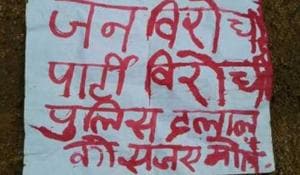 जन विरोधी
पार्टी विरोधी
पुलिस दलाल
की सजा मौत